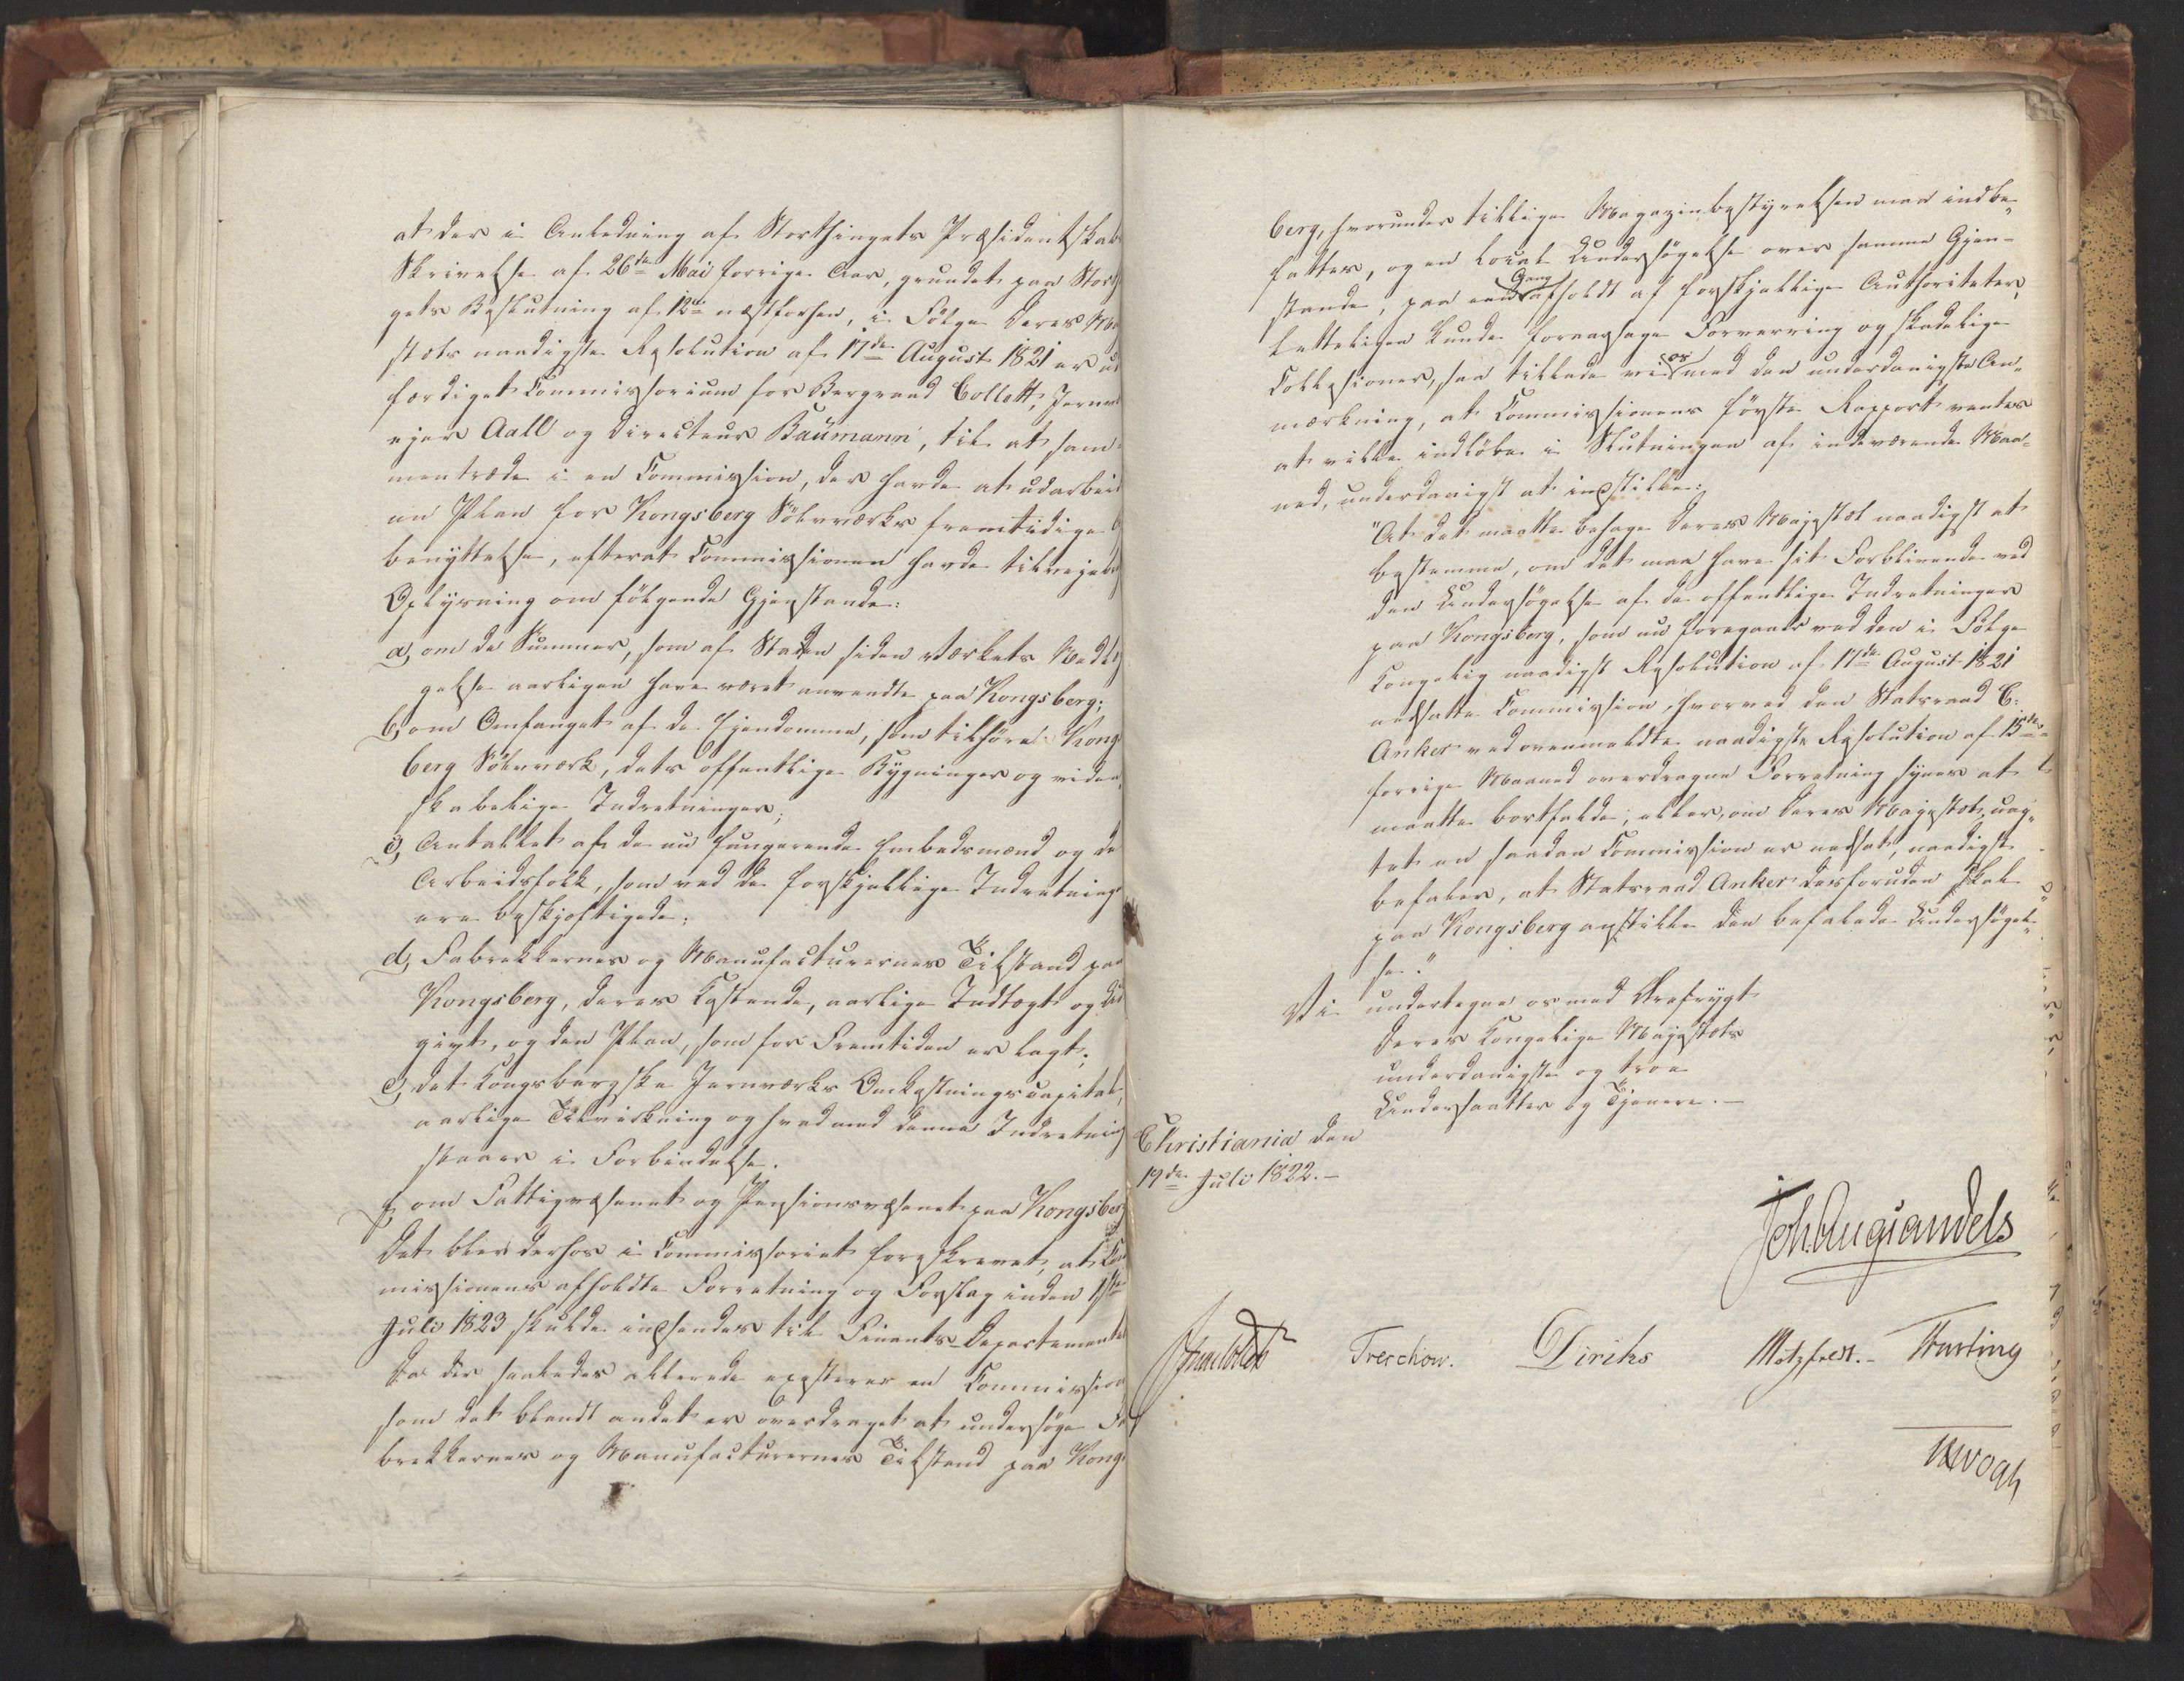 at der i Anledning af Storthingets Præsidentskabs
Skrivelse af 26de Mai forrige Aar, grundet paa Storth
gets Beslutning af 12te næstforhen, i Følge Deres Ma
stæts naadigste Resolution af 17de August 1821 er ud
færdiget Commissorium for Bergraad Collett, Jernv
ejer Aall og Directeur Baumann, til at sam¬
mentræde i en Commission, der havde at udarbeid
en Plan for Kongsberg Sølvværks fremtidige
benyttelse, efterat Commissionen havde tilvejebr
Oplysning om følgende Gjenstande:
a, om de Summer, som af Staten siden Værkets Nedlæg
gelse aarligen have været anvendte paa Kongsberg;
b, om Omfanget af de Ejendomme, som tilhøre Kongs
berg Sølvværk, dets offentlige Bygninger og viden
skabelige Indretninger;
c, Antallet af de nu fungerende Embedsmænd og de
Arbeidsfolk, som ved de forskjellige Indretninge
ere beskjæftigede;
d, Fabrikkernes og Manufacturernes Tilstand paa
Kongsberg, deres Bestaaende, aarlige Indtægt og Ud
givt, og den Plan, som for Fremtiden er lagt;
e, det Kongsbergske Jernværks Omkostningscapital,
aarlige Tilvirkning og hvad med denne Indretning
staaer i Forbindelse.
f, om Fattigvæsenet og Pensionsvæsenet paa Kongsberg
Det blev derhos i Commissoriet foreskrevet, at Com
missionens afholdte Forretning og Forslag inden 1ste
Julii 1823 skulde indsendes til Finants-Departementet
Da der saaledes allerede existerer en Commission
som det blandt andet er overdraget at undersøge Fa
brikkernes og Manufacturernes Tilstand paa Kongs
berg, hvorunder tillige Magazinbestyrelsen maa indbe¬
fattes, og en local Undersøgelse over samme Gjen¬
stande, paa een Gang afholdt af forskjellige Authoriteter,
letteligen kunde foraarsage Forvirring og skadelige
Collisioner, saa tillade vi os med den underdanigste An¬
mærkning, at Commissionens første Rapport ventes
at ville indløbe i Slutningen af indeværende Maa¬
ned, underdanigst at indstille:
"At det maatte behage Deres Majestæt naadigst at
bestemme, om det maa have sit Forblivende ved
den Undersøgelse af de offentlige Indretninger
paa Kongsberg, som nu foregaaer ved den i Følge
Kongelig naadigst Resolution af 17de August 1821
nedsatte Commission, hvorved den Statsraad C:
Anker ved ovenmeldte naadigste Resolution af 15de
forrige Maaned overdragne Forretning synes at
maatte bortfalde; eller, om Deres Majestæt, uag¬
tet en saadan Commission er nedsat, naadigst
befaler, at Statsraad Anker desforuden skal
paa Kongsberg anstille den befalede Undersøgel¬
se."
Vi undertegne os med Ærefrygt
Deres Kongelige Majestæts
underdanigste og troe
Undersaatter og Tjenere.—
Christiania den
19de Juli 1822.—
Joh. Aug. Sandels
Treschow. Diriks Motzfeldt.— Fasting
Vogt